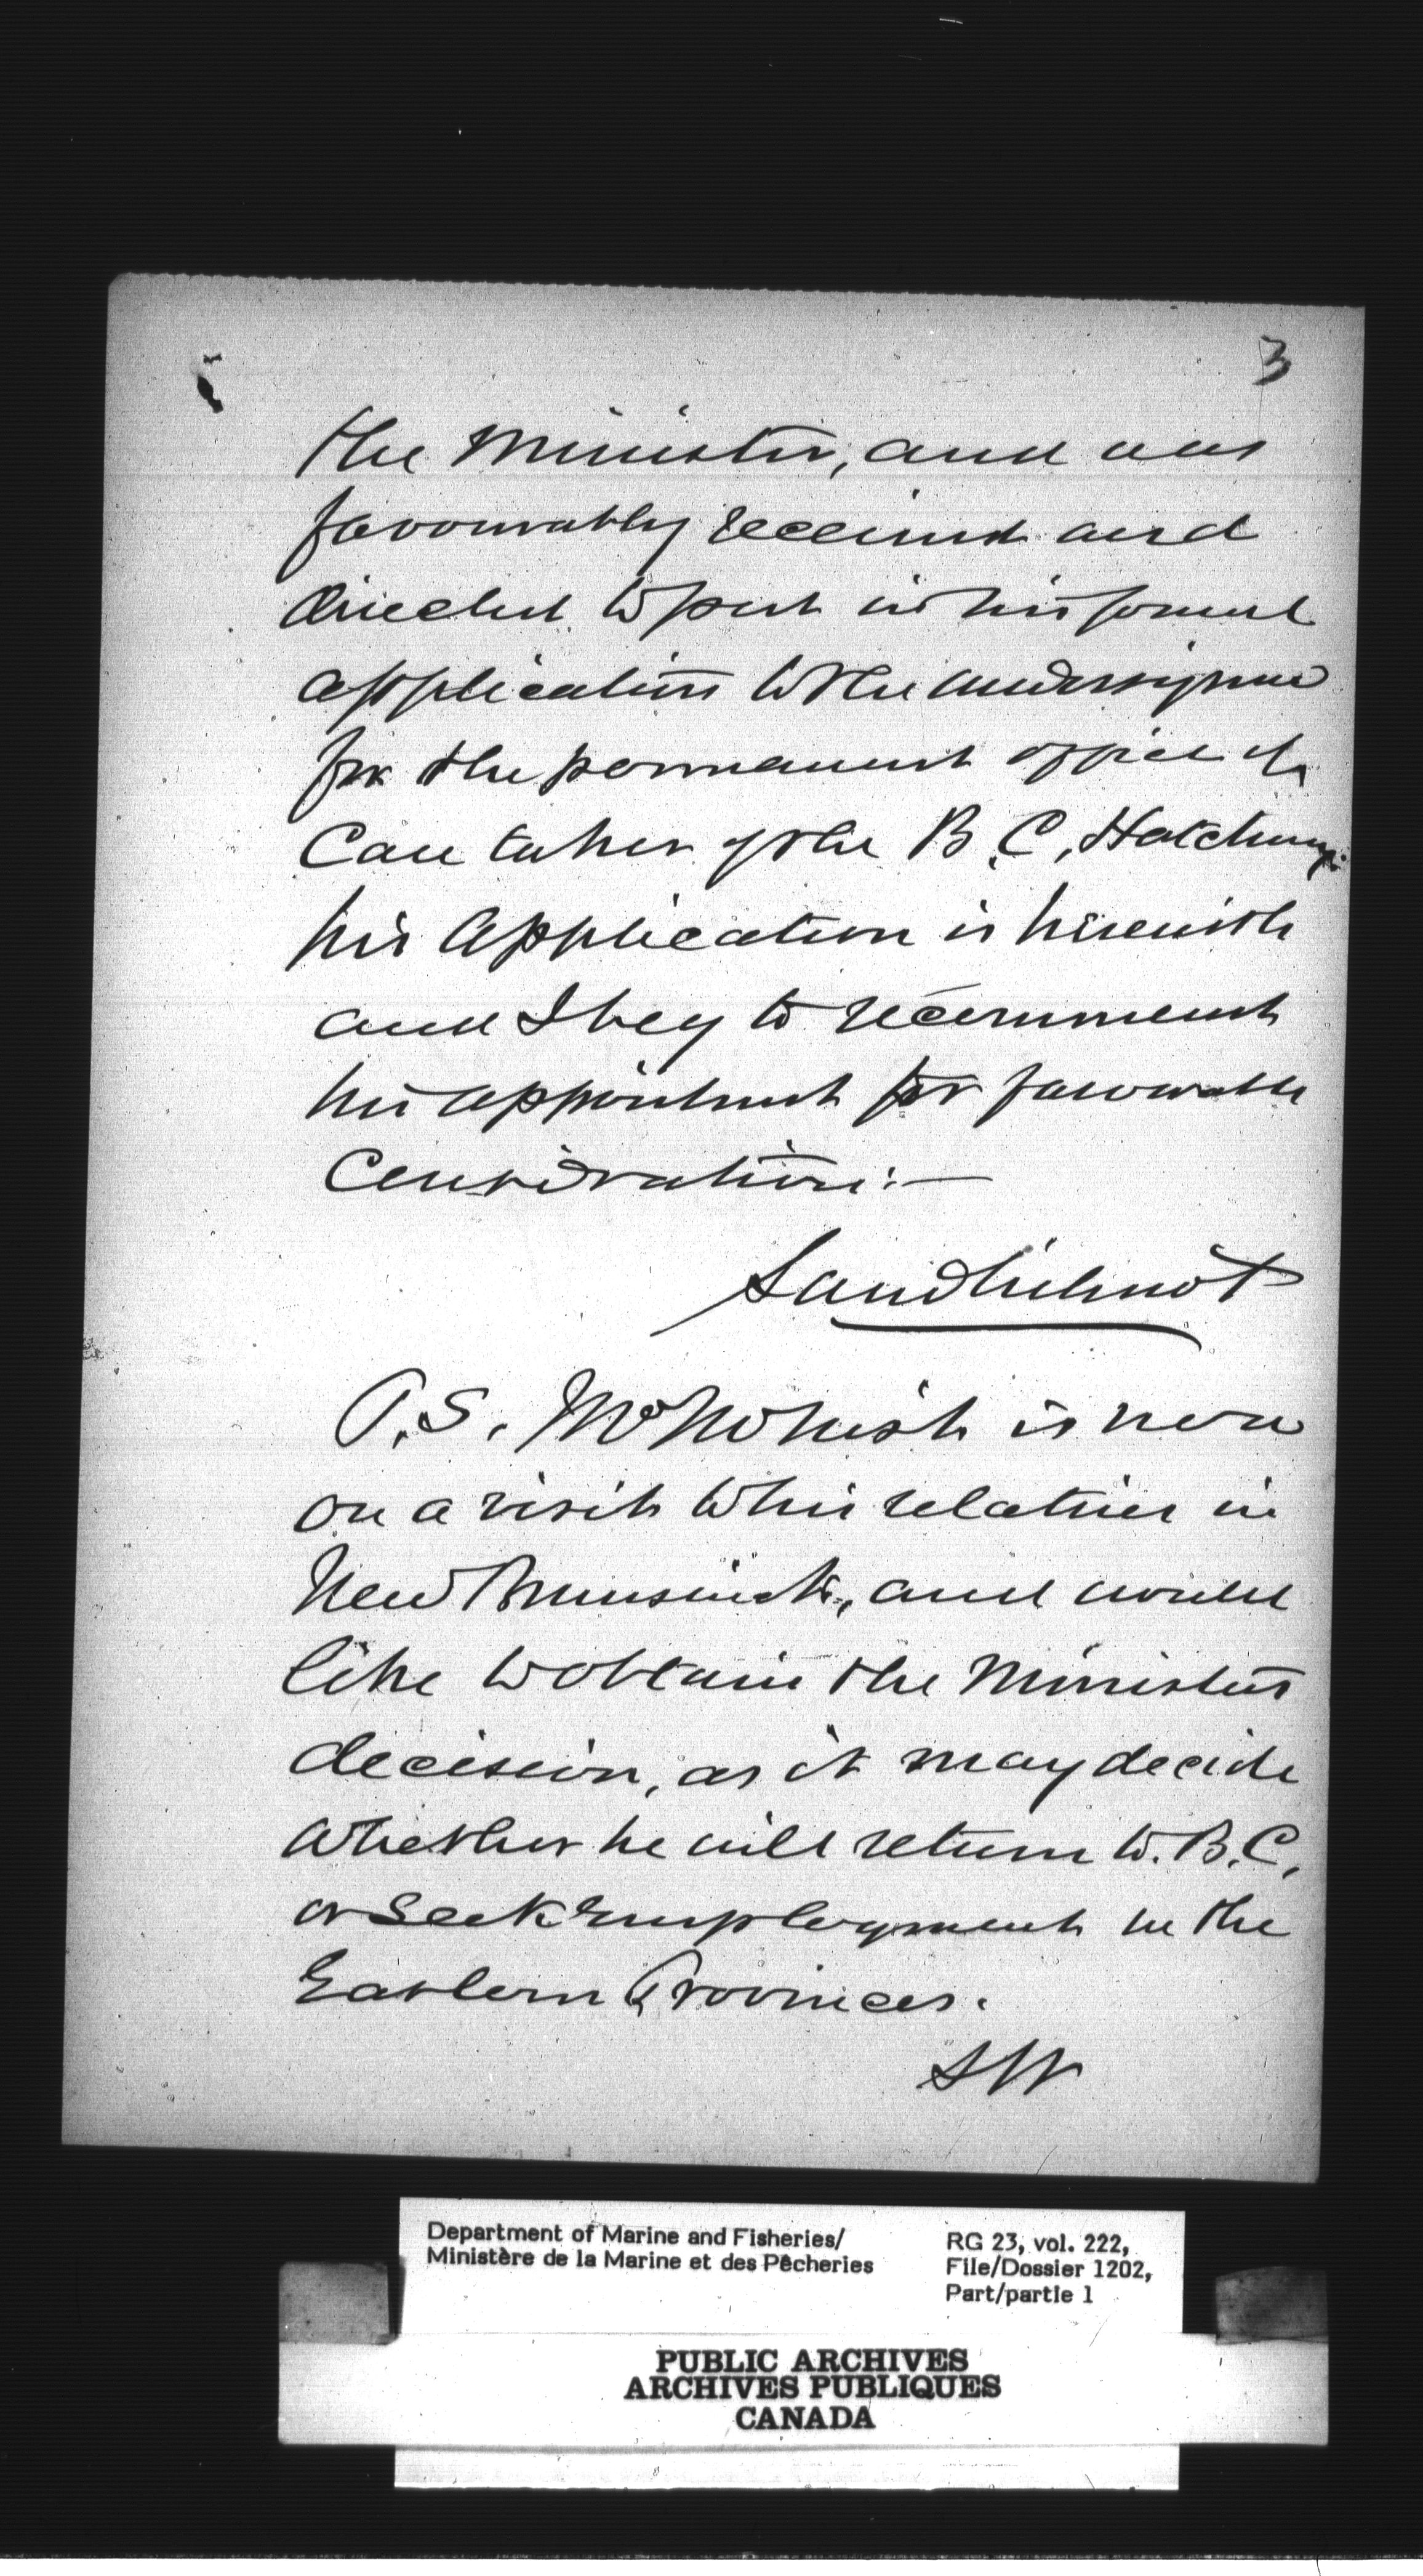 3
the Minister, and was
favourably received and
directed to put in his formal
application to the undersigned
for the permanent office of
Care taker of the B.C. Hatchery:
his Application is herewith
and I beg to recommend
his appointment for favourable
Consideration:—
Saml Wilmot
P.S. Mr McNish is now
on a visit to his relatives in
New Brunswick, and would
like to obtain the Ministers
decision, as it may decide
whether he will return to B.C.
or seek employment in the
Eastern Provinces.
SW
Department of Marine and Fisheries/
Ministère de la Marine et des Pêcheries
RG 23, vol. 222,
File/Dossier 1202,
Part/partie 1
PUBLIC ARCHIVES
ARCHIVES PUBLIQUES
CANADA